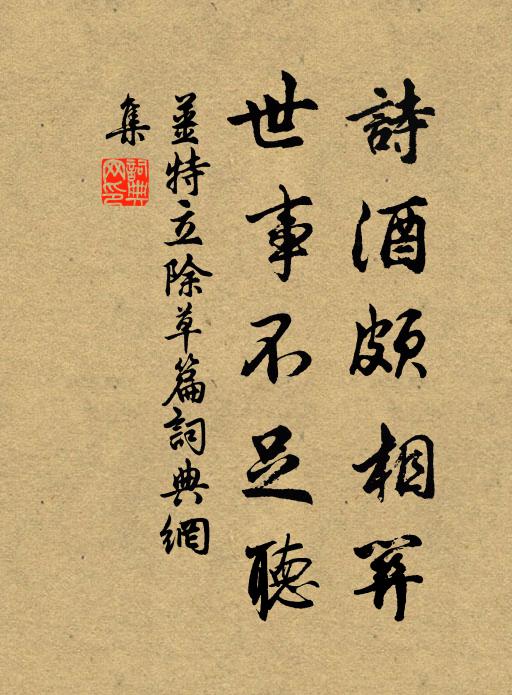 詩酒頗相
世事不足聽
薑特立除草篇詞典網
集
詞典网印